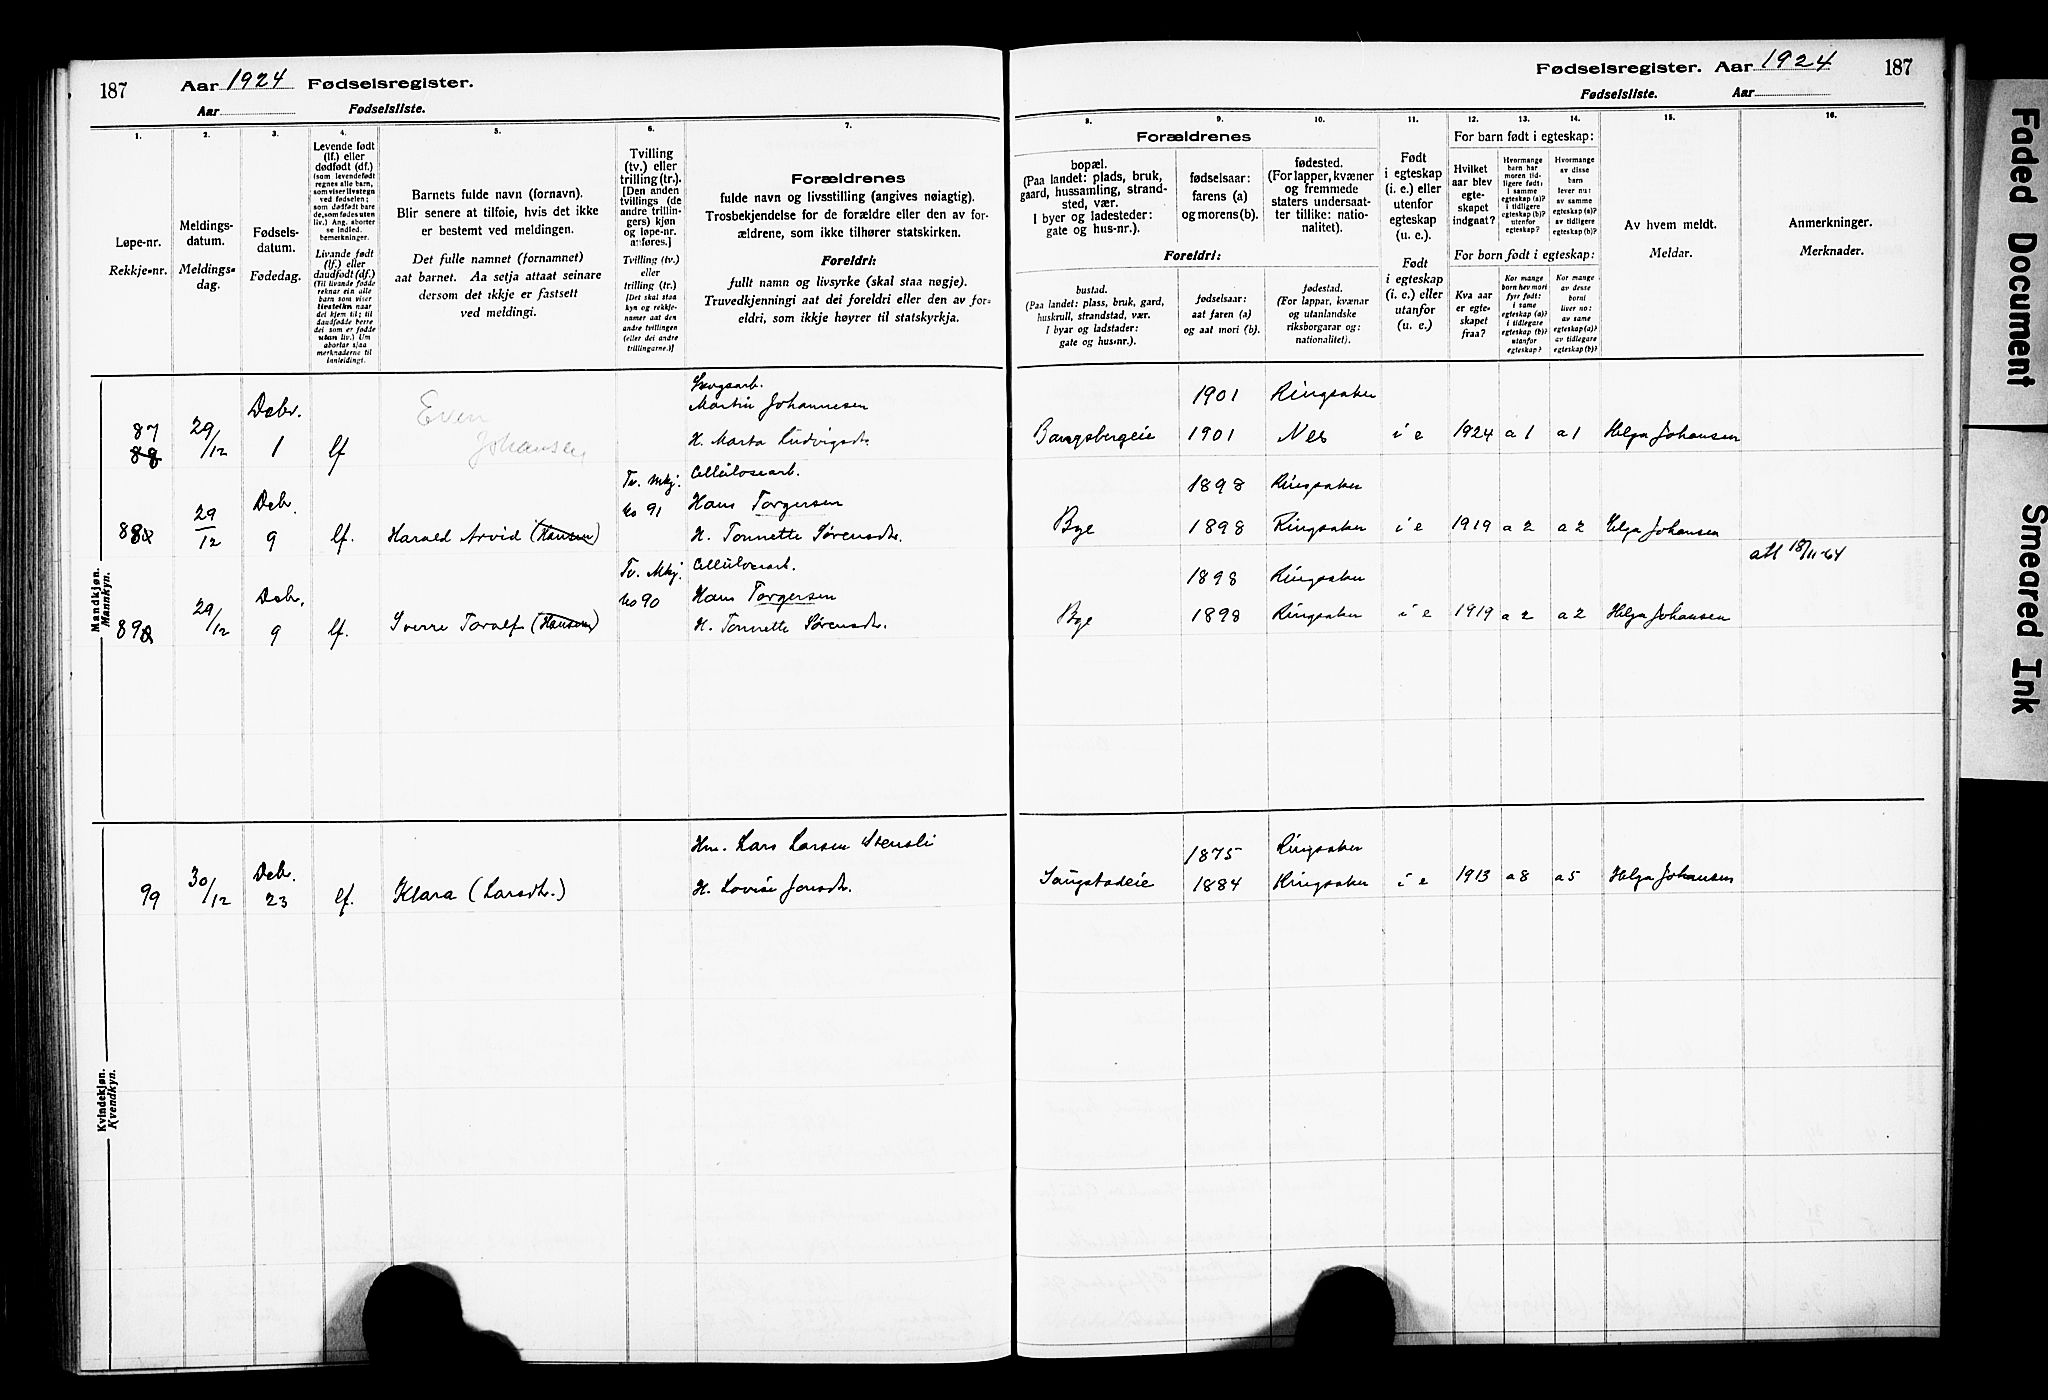 187
Aar 1924 Fødselsregister.
Aar Fødselsliste.
1.
2.
3.
4.
5.
6.
7.
Løpe-nr.
Rekkje-nr.
Meldings-
datum.
Meldings-
dag.
Fødsels-
datum.
Fødedag.
Levende født
(lf.) eller
dødfødt (df.)
(som levendefødt
regnes alle barn,
som viser livstegn
ved fødselen;
som dødfødt bare
de, som fødes uten
liv.) Ang. aborter
se indled.
bemerkninger.
Livande født
(lf.) eller
daudfødt (df.)
Barnets fulde navn (fornavn).
Blir senere at tilføie, hvis det ikke
er bestemt ved meldingen.
Det fulle namnet (fornamnet)
aat barnet. Aa setja attaat seinare
dersom det ikkje er fastsett
ved meldingi.
Tvilling
(tv.) eller
trilling (tr.).
[Den anden
tvillings (de
andre trillin-
gers) kjøn
og løpe-nr.
anføres.]
Tvilling (tv.)
eller
trilling (tr.)
[Det skal staa
kyn og rekkje-
numer aat den
andre tvillingen
(eller dei andre
trillingarne.)]
Forældrenes
fulde navn og livsstilling (angives nøiagtig).
Trosbekjendelse for de forældre eller den av for-
ældrene, som ikke tilhører statskirken.
Foreldri:
fullt namn og livsyrke (skal staa nøgje).
Truvedkjenningi aat dei foreldri eller den av for-
eldri, som ikkje høyrer til statskyrkja.
Mandkjøn.
Mannkyn.
87
88
29/12
Debr.
1
lf
Even
Johansen
Skogsarb.
Martin Johannesen
H. Marta Ludvigsdtr.
88
29/12
Debr.
9
lf.
Harald Arvid (Hansen)
Tv. Mkj.
No 91
Cellulosearb.
Hans Torgersen
H. Tonnette Sørensdtr.
89
29/12
Debr.
9
lf.
Sverre Toralf (Hansen)
Tv. Mkj.
No 90
Cellulosearb.
Hans Torgersen
H. Tonnette Sørensdtr.
Kvindekjøn.
Kvendkyn.
99
30/12
Debr.
23
lf.
Klara (Larsdtr.)
Hm. Lars Larsen Stensli
H. Lovise Jonsdtr.
Fødselsregister. Aar 1924
187
Fødselsliste. Aar
8.
9.
10.
11.
12.
13.
14.
15.
16.
Forældrenes
bopæl.
(Paa landet: plads, bruk,
gaard, hussamling, strand-
sted, vær.
I byer og ladesteder:
gate og hus-nr.).
fødselsaar:
farens (a)
og morens (b).
fødested.
(For lapper, kvæner
og fremmede
staters undersaat-
ter tillike: natio-
nalitet).
Foreldri:
bustad.
(Paa landet: plass, bruk, gard,
huskrull, strandstad, vær.
I byar og ladstader:
gate og hus-nr.).
fødselsaar:
aat faren (a)
og aat mori (b).
fødestad.
(For lappar, kvænar
og utanlandske
riksborgarar og:
nationalitet).
Født
i egteskap
(i. e.) eller
utenfor
egteskap
(u. e.).
Født
i egteskap
(i. e.) eller
utanfor
(u. e.).
For barn født i egteskap:
Hvilket
aar blev
egte-
skapet
indgaat?
Hvormange
barn har
moren tid-
ligere født:
i samme
egteskap (a)?
i tidligere
egteskap (b)?
utenfor
egteskap?
Hvormange
av disse
barn
lever nu:
av samme
egteskap (a)?
av tidligere
egteskap (b)?
For born født i egteskap:
Kva aar
er egte-
skapet
fraa?
Kor mange
born hev mori
fyrr født:
i same
egteskap (a)?
i tidlegare
egteskap (b)?
utanfor
egteskap?
Kor mange
av desse
borni
liver no:
av same
egteskap (a)?
av tidlegare
egteskap (b)?
Av hvem meldt.
Meldar.
Anmerkninger.
Merknader.
1901 Ringsaker
Bangsbergeie 1901 Nes i e 1924 a 1 a 1 Helga Johansen
1898 Ringsaker
Bye 1898 Ringsaker i e 1919 a 2 a 2 Helga Johansen
att 18/11-64
1898 Ringsaker
Bye 1898 Ringsaker i e 1919 a 2 a 2 Helga Johansen
1875 Ringsaker
Saugstadeie 1884 Ringsaker i e 1913 a 8 a 5 Helga Johansen
Faded Document
Smeared Ink